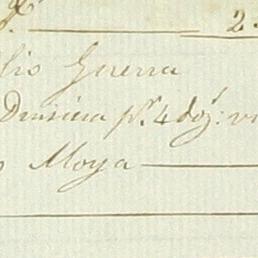 2
lio Guerra
Division pr. 4 doz:
o Moya